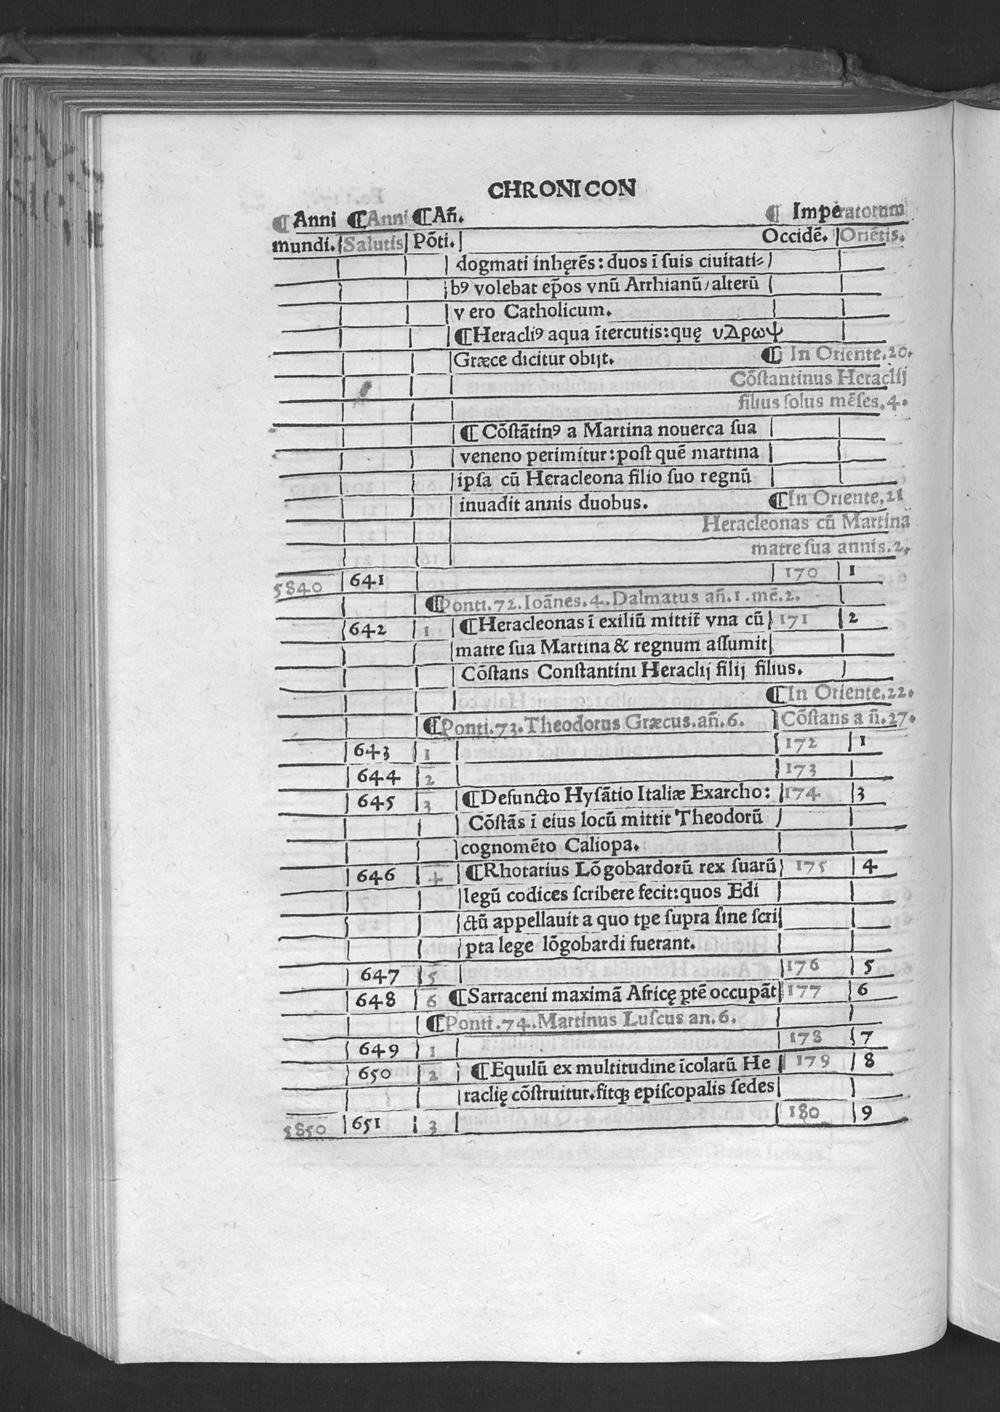 CHRONICON
¶ Anni ¶ Anni ¶ Añ. ¶ Imperatorum
mundi. Salutis Põti. Occidẽ. Oriẽtis.
dogmati inhęrẽs: duos ĩ suis ciuitati⸗
bꝰ volebat ep̃os vnũ Arrhianũ/alterũ
vero Catholicum.
¶ Heracliꝰ aqua ĩtercutis: quę υΔρωψ
Græce dicitur obijt. ¶ In Oriente. 20.
Cõstantinus Heraclij
filius solus mẽses. 4.
¶ Cõstãtinꝰ a Martina nouerca sua
veneno perimitur: post quẽ martina
ipsa cũ Heracleona filio suo regnũ
inuadit annis duobus. ¶ In Oriente. 21
Heracleonas cũ Martina
matre sua annis. 2.
5840 641 170 1
¶ Ponti. 72. Ioãnes. 4. Dalmatus añ. 1. mẽ. 2.
642 1 ¶ Heracleonas ĩ exiliũ mittit̃ vna cũ 171 2
matre sua Martina & regnum assumit
Cõstans Constantini Heraclij filij filius.
¶ In Oriente. 22.
¶ Ponti. 73. Theodorus Græcus. añ. 6. Cõstans a ñ. 27.
643 1 172 1
644 2 173
645 3 ¶ Defuncto Hysãtio Italiæ Exarcho: 174 3
Cõstãs ĩ eius locũ mittit Theodorũ
cognomẽto Caliopa.
646 4 ¶ Rhotarius Lõgobardorũ rex suarũ 175 4
legũ codices scribere fecit: quos Edi
ctũ appellauit a quo tp̃e supra sine scri
pta lege lõgobardi fuerant.
647 5 176 5
648 6 ¶ Sarraceni maximã Africę ꝑtẽ occupãt 177 6
¶ Ponti. 74. Martinus Luscus an. 6.
649 1 178 7
650 2 ¶ Equilũ ex multitudine ĩcolarũ He 179 8
raclię cõstruitur. fitqꝫ episcopalis sedes
5850 651 3 180 9